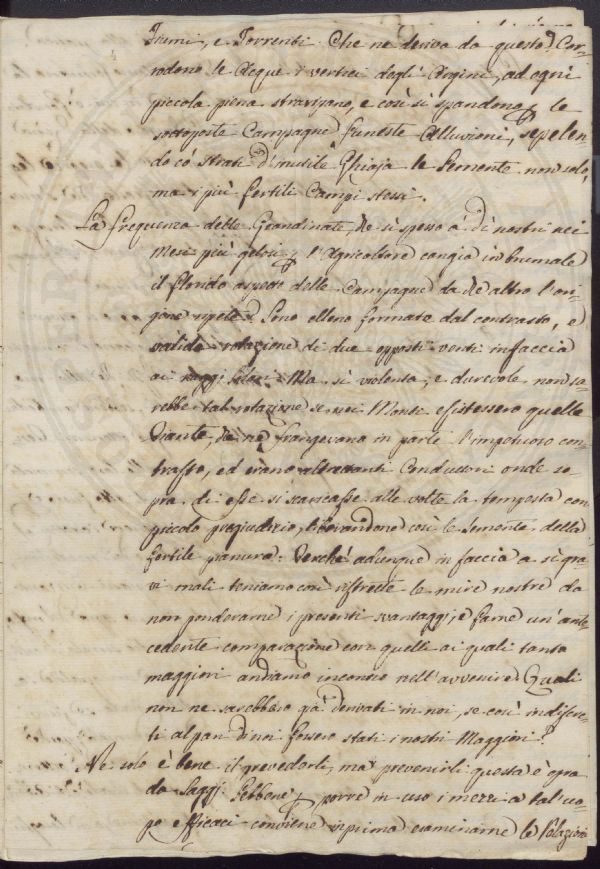 Fiumi, e Torrenti. Che ne deriva da questo? Cor-
rodono le Acque i vertici dagli Argini, ad ogni
piccola piena straripano, e così si spandono le
sottoposte Campagne funeste Alluvioni, sepelen-
do cò strati d'inutile Ghiaja le Semente non solo,
ma i più fertili Campi stessi.
La frequenza delle Grandinate, che sì spesso a' dì nostri nei
Mesi più gelosi l'Agricoltore cangia in brumale
il florido aspetto delle Campagne da che altro l'ori-
gine ripete? Sono elleno formate dal contrasto, e
valida rotazione di due opposti venti in faccia
ai raggi Solari. Ma sì violenta, e durevole non sa-
rebbe tal rotazione se nei Monti esistessero quelle
Piante, che ne frangevano in parte l'impetuoso con-
trasto, ed erano altrettanti Conduttori onde so-
pra di esse si scaricasse alle volte la tempesta con
piccolo pregiudizio, liberandone così le Semente della
fertile pianura. Perchè adunque in faccia a sì gra-
vi mali teniamo così ristrette le mire nostre da
non ponderarne i presenti svantaggi, e farne un'ante-
cedente comparazione con quelli ai quali tanto
maggiori andiamo incontro nell'avvenire? Quali
non ne sarebbero già derivati in noi, se così indifferen-
ti al par di noi fossero stati i nostri Maggiori?
Ne solo è bene il prevederli, ma prevenirli questa è opra
da Saggi. Sebbene porre in uso i mezzi a tal uo-
po efficaci conviene in prima esaminarne le